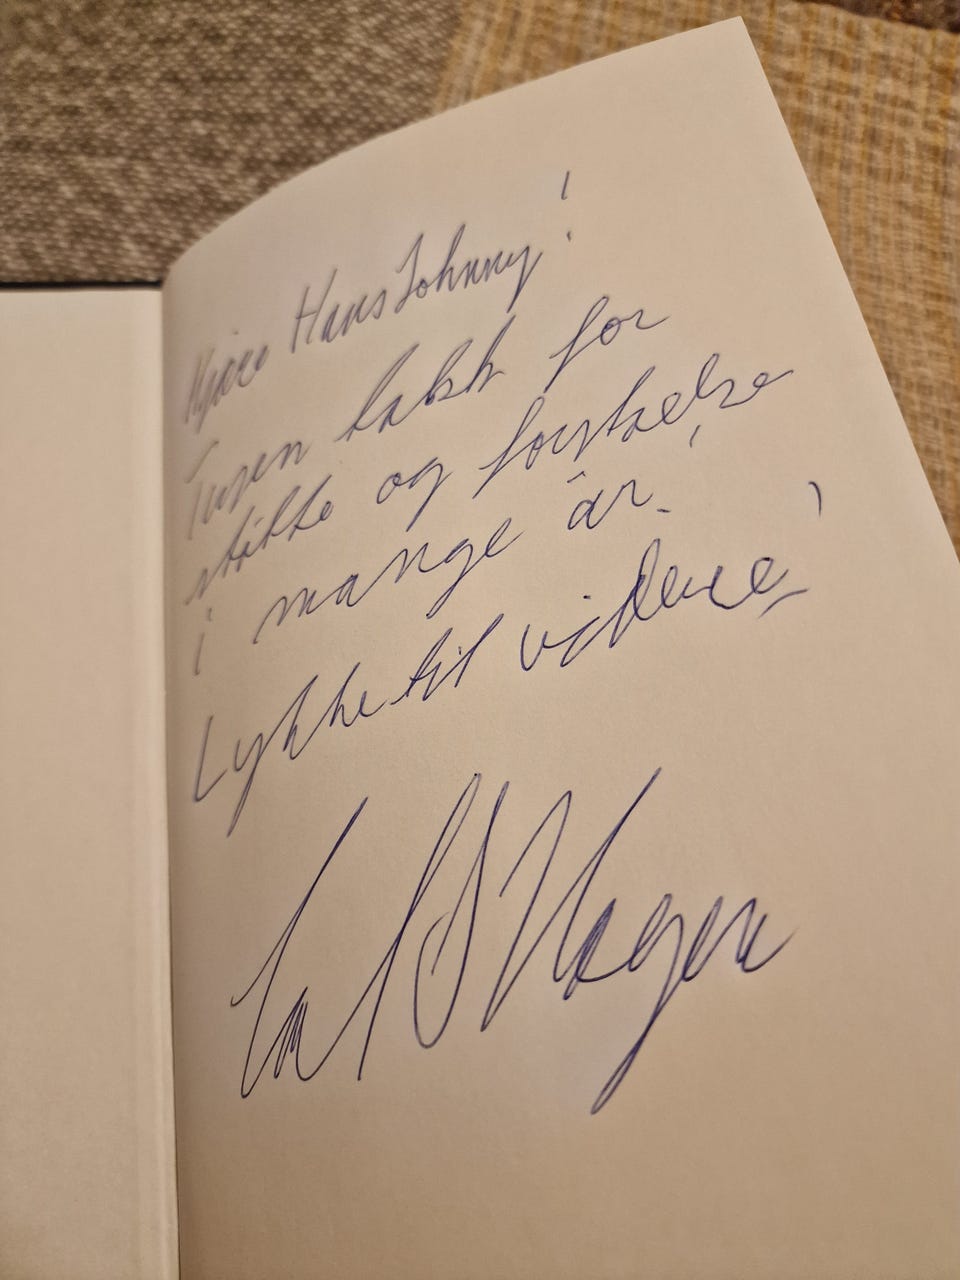 Kjære Hans Johnny!
Tusen takk for
støtte og forståelse
i mange år.
Lykke til videre!
Carl I Hagen